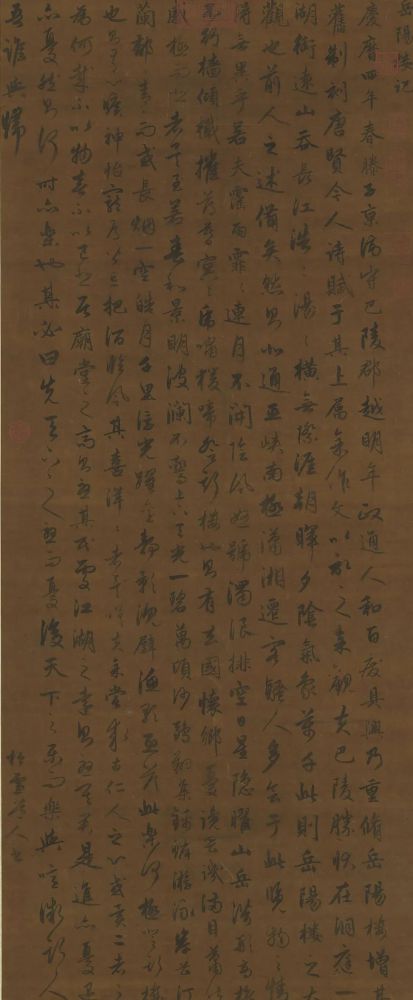 岳陽樓記
慶曆四年春滕子京謫守巴陵郡越明年政通人和百廢具興乃重脩岳陽樓增其
舊制刻唐賢今人詩賦于其上屬余作文以記之余觀夫巴陵勝狀在洞庭一
湖銜遠山吞長江浩〻湯〻橫無際涯朝暉夕陰氣象萬千此則岳陽樓之大
觀也前人之述備矣然則北通巫峽南極瀟湘遷客騷人多會于此覽物之情
得無異乎若夫霪雨霏〻連月不開陰風怒號濁浪排空日星隱曜山岳潛形商旅
不行檣傾檝摧薄暮冥〻虎嘯猿啼登斯樓也則有去國懷鄉憂讒畏譏滿目蕭然
感極而悲者矣至若春和景明波瀾不驚上下天光一碧萬頃沙鷗翔集錦鱗游泳岸芷汀
蘭郁〻青〻而或長煙一空皓月千里浮光躍金靜影沉璧漁歌互答此樂何極登斯樓
也則有心曠神怡寵辱皆忘把酒臨風其喜洋〻者矣嗟夫予嘗求古仁人之心或異二者之
為何哉不以物喜不以己悲居廟堂之高則憂其民處江湖之遠則憂其君是進亦憂退
亦憂然則何時而樂耶其必曰先天下之憂而憂後天下之樂而樂與噫微斯人
吾誰與歸
松雪道人書